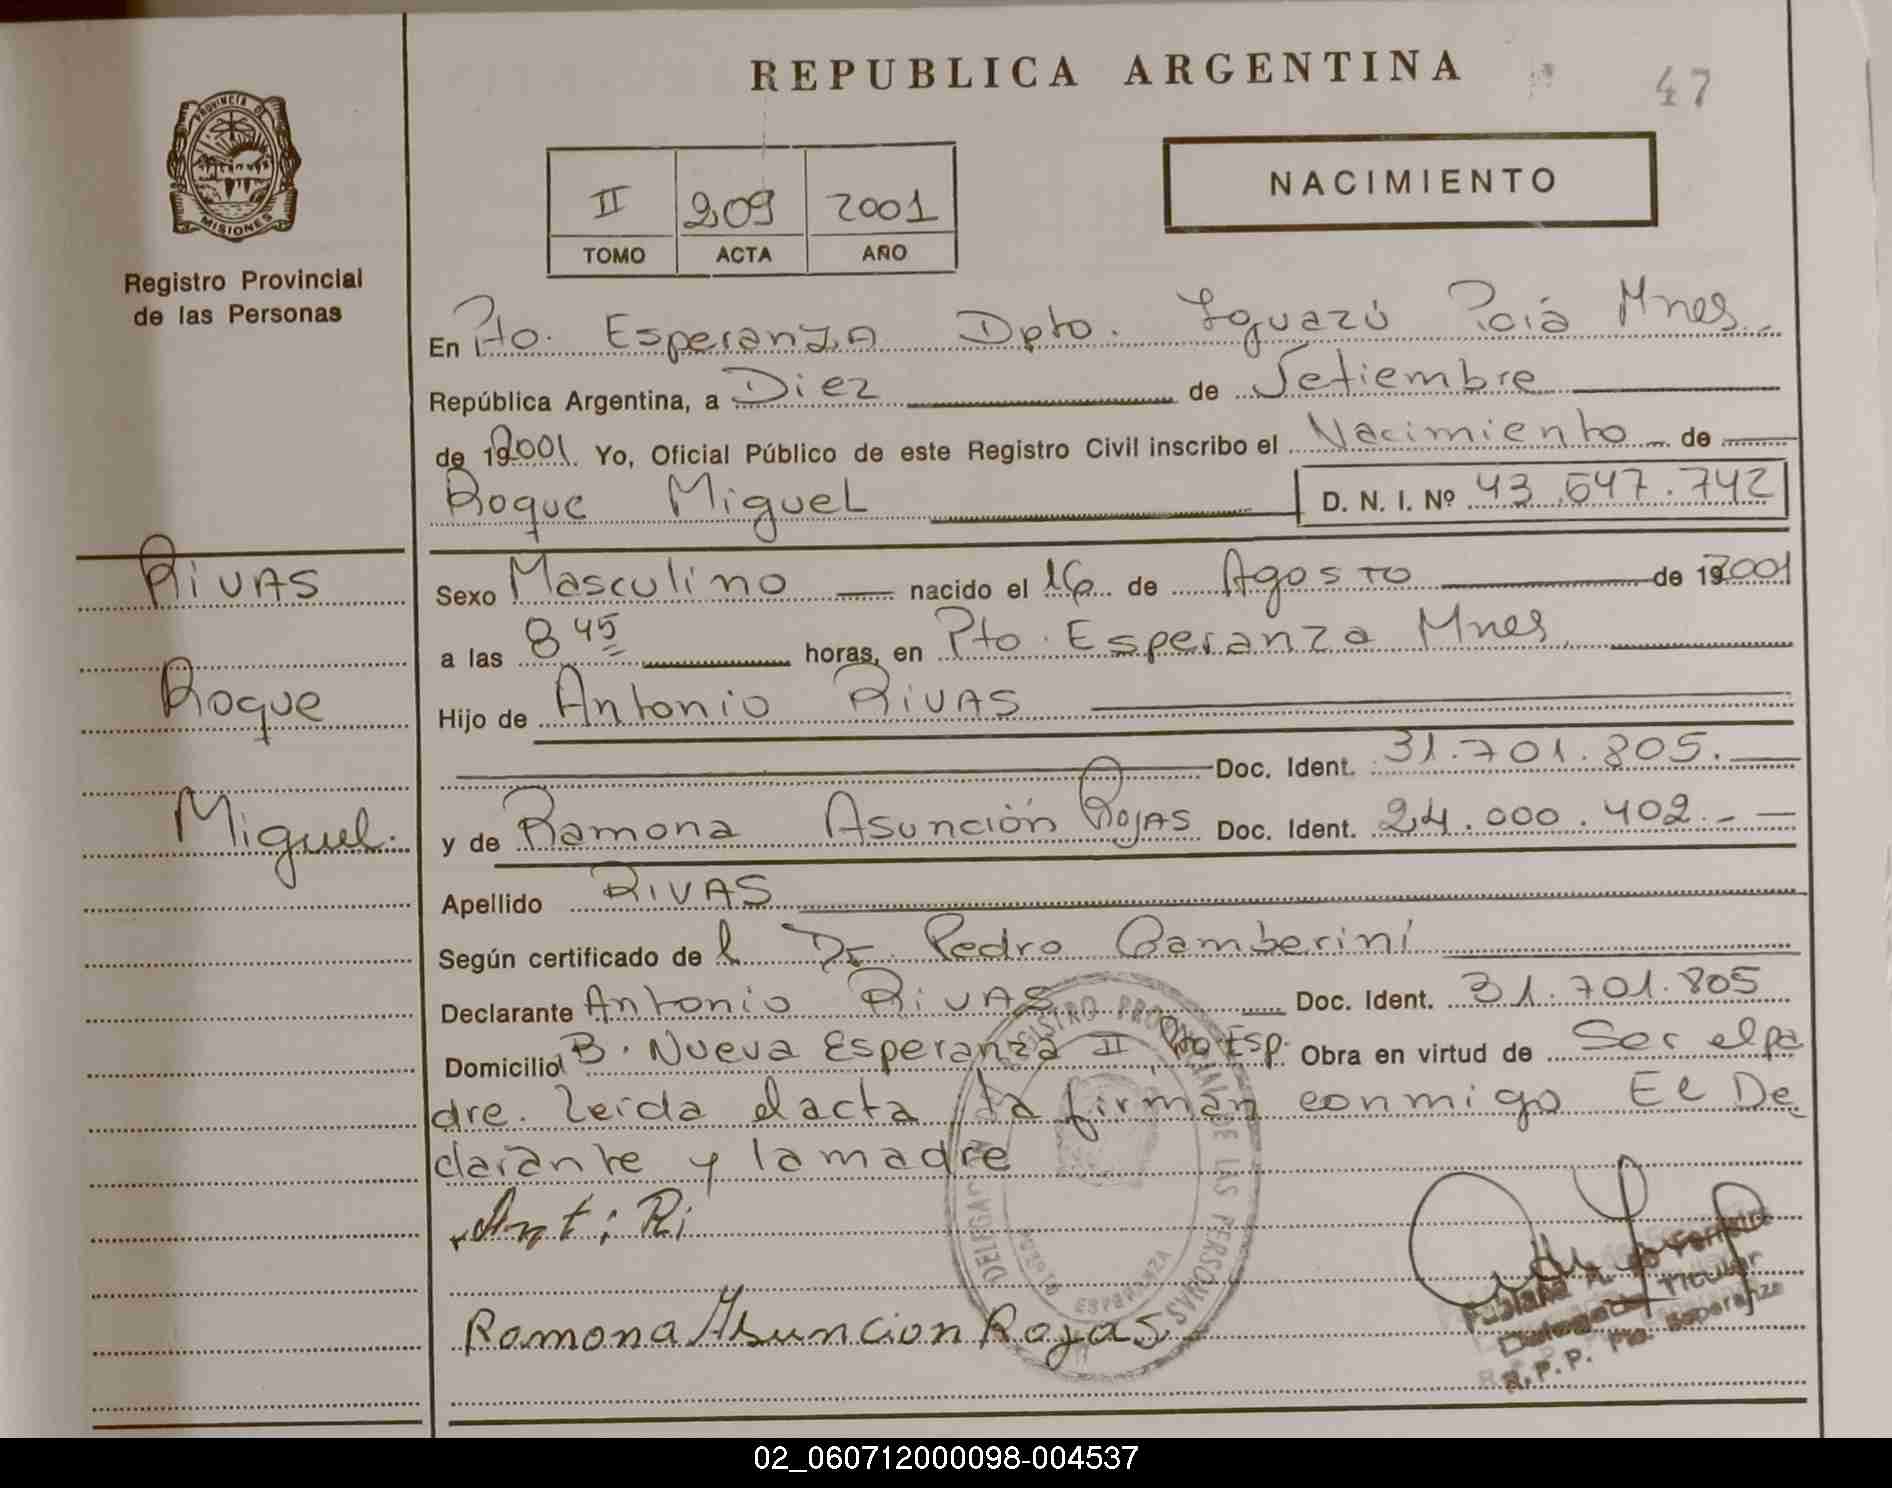 REPUBLICA ARGENTINA
47
PROVINCIA D
MISIONES
Registro Provincial
de las Personas
II 209 2001
TOMO ACTA AÑO
NACIMIENTO
En Pto. Esperanza Dpto. Iguazú Pcia Mnes.
República Argentina, a Diez de Setiembre
de 192001. Yo, Oficial Público de este Registro Civil inscribo el Nacimiento de
Roque Miguel D. N. I. Nº 43.547.742
RIVAS
Roque
Miguel.
Sexo Masculino nacido el 16 de Agosto de 192001
a las 8 45 horas, en Pto. Esperanza Mnes.
Hijo de Antonio RIVAS
Doc. Ident. 31.701.805.
y de Ramona Asunción Rojas Doc. Ident. 24.000.402.-
Apellido RIVAS
Según certificado de l Dr. Pedro Gamberini
Declarante Antonio RIVAS Doc. Ident. 31.701.805
Domicilio B. Nueva Esperanza II Pto Esp. Obra en virtud de Ser el pa
dre. Leída el acta la firman conmigo El De
clarante y la madre
Ant: Ri
Ramona Asuncion Rojas
DELEGA REGISTRO PROVINCIAL DE LAS PERSONAS
PUERTO ESPERANZA
Titular
R.P.P. Pto. Esperanza
02_060712000098-004537